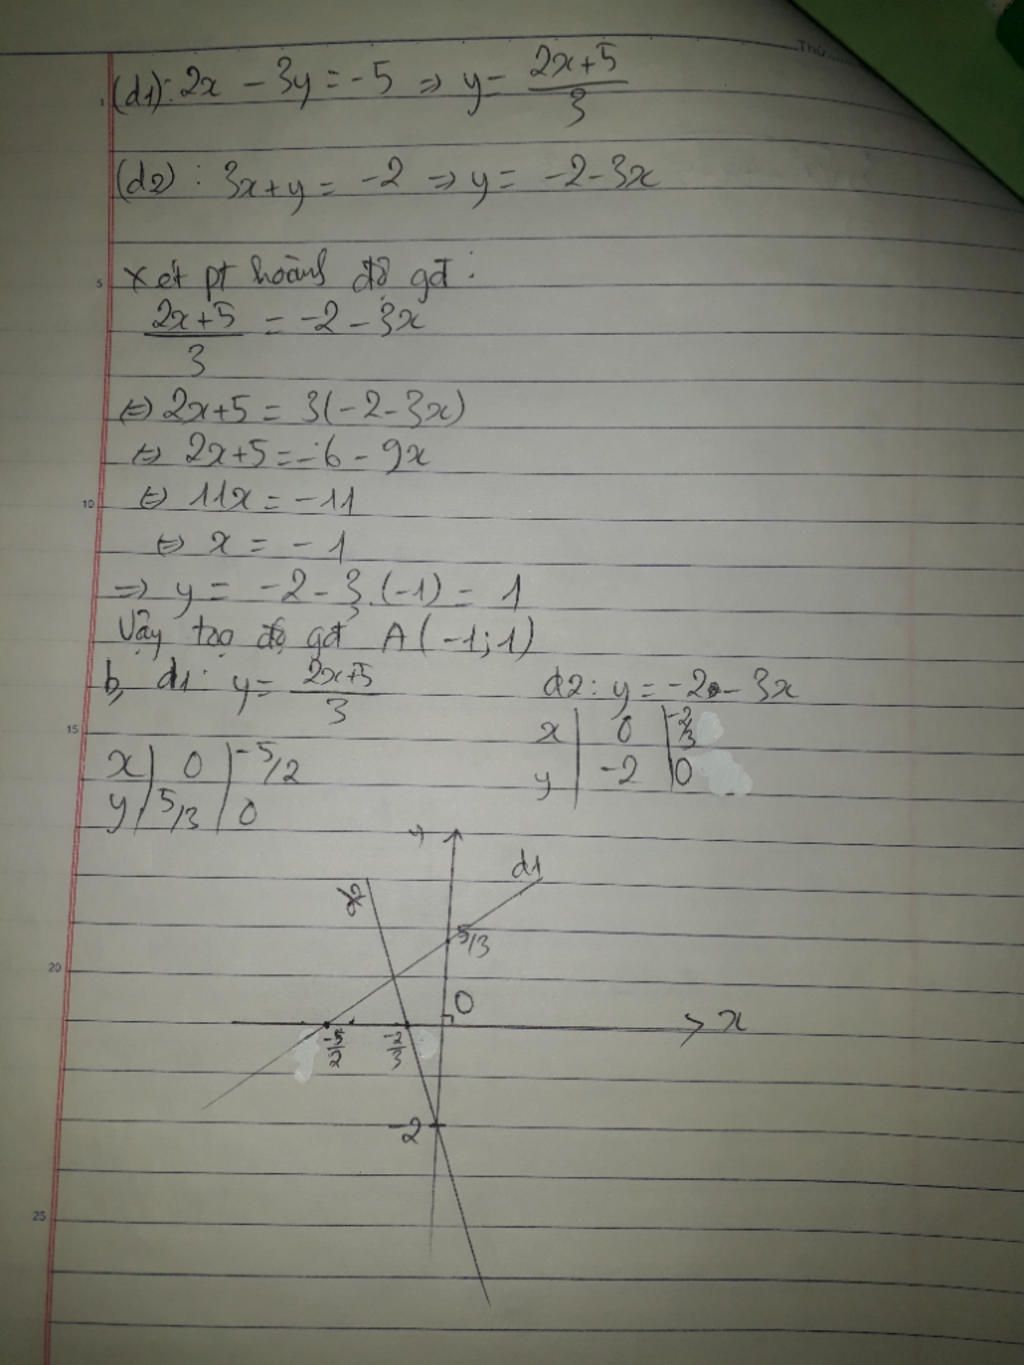 Thứ......
(d1): 2x - 3y = -5 ⇒ y = (2x+5)/3
(d2): 3x+y = -2 ⇒ y = -2-3x
5
Xét pt hoành độ gđ:
(2x+5)/3 = -2-3x
⇔ 2x+5 = 3(-2-3x)
⇔ 2x+5 = -6-9x
10
⇔ 11x = -11
⇔ x = -1
⇒ y = -2-3.(-1) = 1
Vậy tạo độ gđ A(-1;1)
b, d1: y = (2x+5)/3
d2: y = -2-3x
15
x | 0 | -5/2
y | 5/3 | 0
x | 0 | -2/3
y | -2 | 0
y
d1
d2
5/3
20
0
x
-5/2
-2/3
-2
25